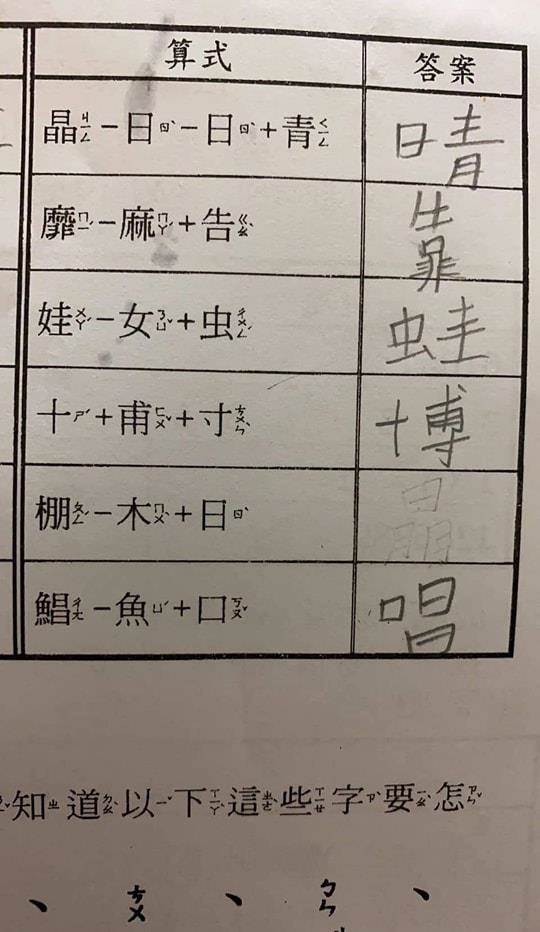 算式 答案
晶ㄐㄧㄥ－日ㄖˋ－日ㄖˋ＋青ㄑㄧㄥ 晴
靡ㄇㄧˇ－麻ㄇㄚˊ＋告ㄍㄠˋ 靠
娃ㄨㄚˊ－女ㄋㄩˇ＋虫ㄔㄨㄥˊ 蛙
十ㄕˊ＋甫ㄈㄨˇ＋寸ㄘㄨㄣˋ 博
棚ㄆㄥˊ－木ㄇㄨˋ＋日ㄖˋ
鯧ㄔㄤ－魚ㄩˊ＋口ㄎㄡˇ 唱
知ㄓ道ㄉㄠˋ以ㄧˇ下ㄒㄧㄚˋ這ㄓㄜˋ些ㄒㄧㄝ字ㄗˋ要ㄧㄠˋ怎ㄗㄣˇ